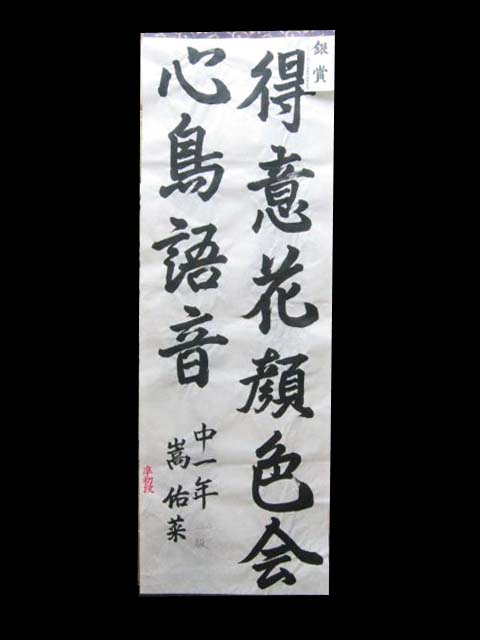 銀賞
得意花顔色会
心鳥語音
中一年
嵩佑菜
準初段